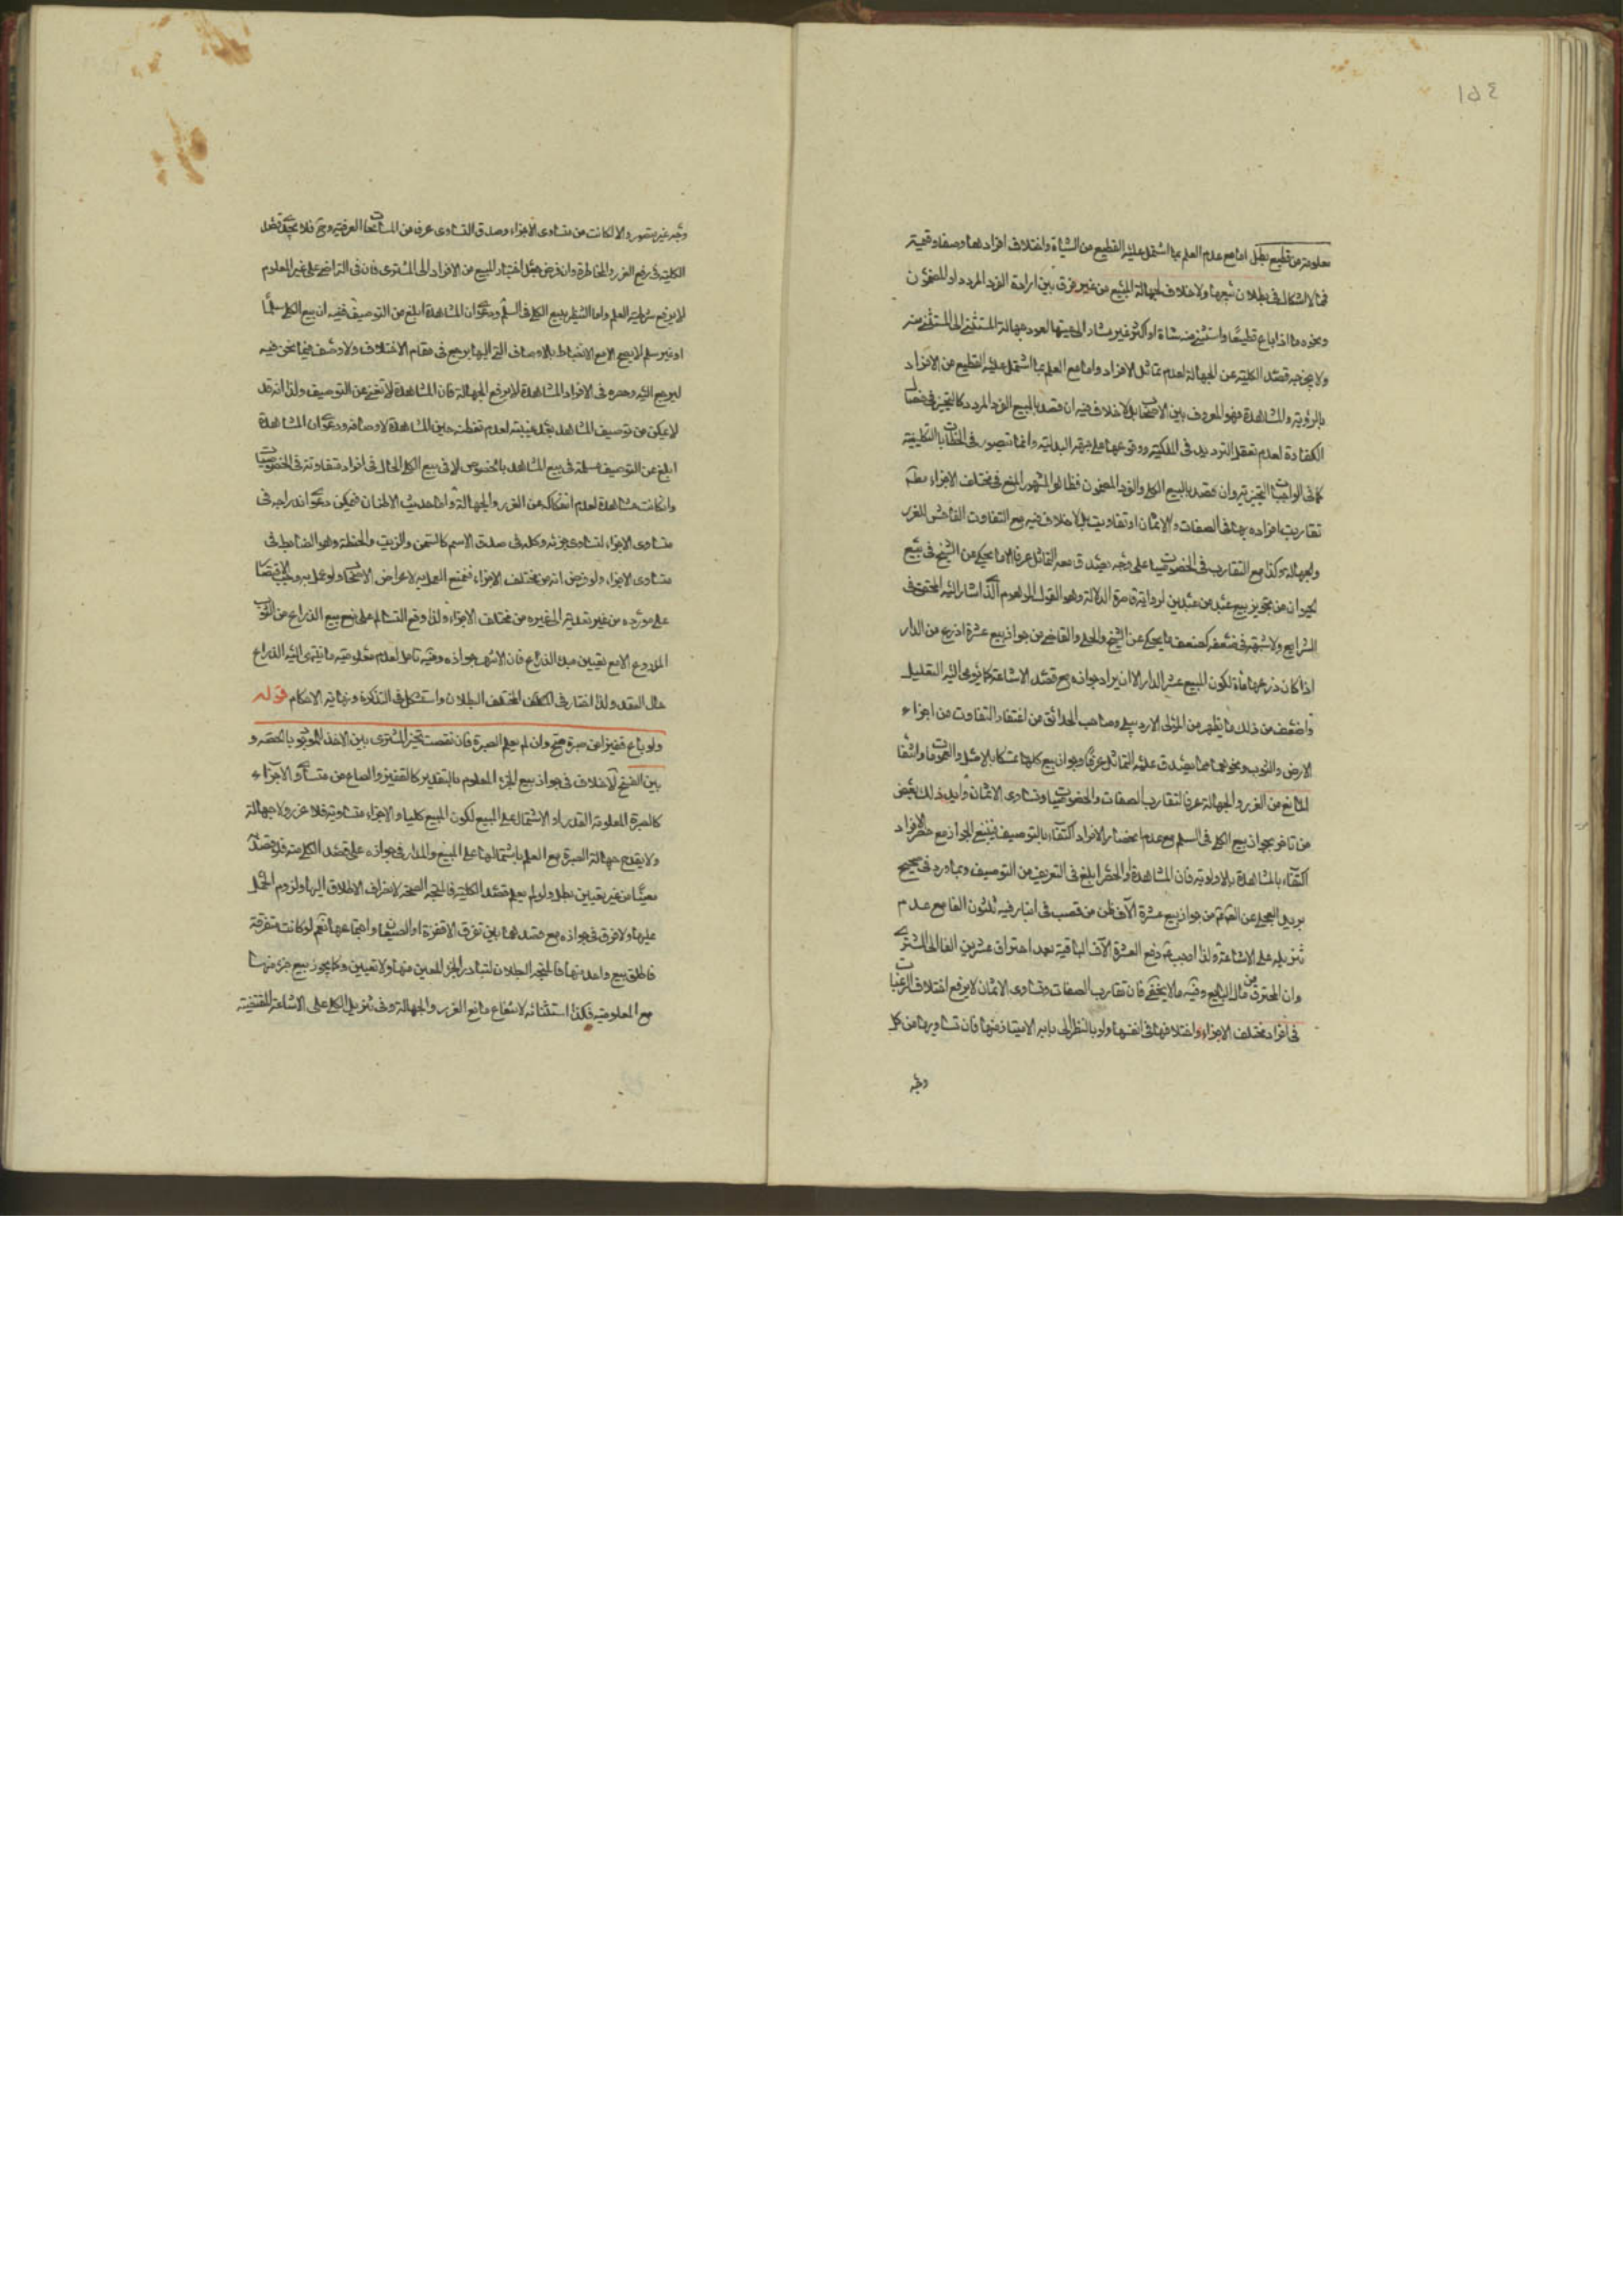 ١٥٤
معلومة من قطيع بطل اما مع عدم العلم بما اشتمل عليه القطيع من الشياة واختلاف افرادها وصفا وقيمة
فما لا اشكال في بطلان بيعها ولا خلاف لجهالة المبيع من غير فرق بين ارادة الفرد المردد او المضمون
ونحوه ما اذا باع قطيعا واستثنى منه شاة او اكثر غير مشار الى عينها لعود جهالة المستثنى الى المستثنى منه
ولا يخرجه قصد الكلية عن الجهالة لعدم تماثل الافراد واما مع العلم بما اشتمل عليه القطيع من الافراد
بالرؤية والمشاهدة فهو المعروف بين الاصحاب بلا خلاف فيه ان قصد بالمبيع الفرد المردد كالتخيير في خصال
الكفارة لعدم تعقل الترديد في الملكية ووقوعها على جهة البدلية وانما يتصور في الخطابات التكليفية
كما في الواجبات التخييرية وان قصد بالمبيع الكلي والفرد المضمون فظاهر المشهور المنع في مختلف الاجزاء مطلقا
تقاربت افراده بها في الصفات والاثمان او تفاوتت بلا خلاف فيه مع التفاوت الفاحش للغرر
والجهالة وكذا مع التقارب في الخصوصيات على وجه يصدق معه التماثل عرفا الا ما يحكى عن الشيخ في بيع
الحيوان من تجويز بيع عبد من عبدين لرواية قاصرة الدلالة وهو القول الموهوم الذي اشار اليه المحقق في
الشرايع ولا شبهة في ضعفه كضعف ما يحكى عن الشيخ والحلي والقاضي من جواز بيع عشرة اذرع من الدار
اذا كان ذرعها مأة لكون المبيع عشر الدار الا ان يراد جوازه مع قصد الاشاعة كما يومى اليه التعليل
واضعف من ذلك ما يظهر من المولى الاردبيلي وصاحب الحدائق من اغتفار التفاوت من اجزاء
الارض والثوب ونحوهما مما يصدق عليه التماثل عرفا وجواز بيع كلها تمسكا بالاصل والعمومات وانتفاء
المانع من الغرر والجهالة عرفا لتقارب الصفات والخصوصيات وتساوى الاثمان وأيد ذلك بعض
من تاخر بجواز بيع الكلي في السلم مع عدم انحصار الافراد اكتفاء بالتوصيف فينبغي الجواز مع حصر الافراد
اكتفاء بالمشاهدة بالاولوية فان المشاهدة والحصر ابلغ في التعريف من التوصيف وبما ورد في صحيح
بريد العجلي عن الصادق من جواز بيع عشرة الآف طن من قصب في انبار فيه ثلثون الفا مع عدم
تنزيله على الاشاعة ولذا اوجب دفع العشرة الآف الباقية بعد احتراق عشرين الفا الى المشتري
وان المحترق من مال البايع وفيه ما لا يخفى فان تقارب الصفات وتساوى الاثمان لا يرفع اختلاف الرغبات
في افراد مختلف الاجزاء واختلافها في انفسها ولو بالنظر الى ما به الامتياز منها فان تساويها من كل
وجه
وجه غير متصور والا لكانت من متساوى الاجزاء وصدق التساوى عرفا من المسامحات العرفية وح فلا يجدي قصد
الكلية في رفع الغرر والمخاطرة وان فرض جعل اختيار المبيع من الافراد الى المشترى فان في التراضي على غير المعلوم
لا يرفع شرطية العلم واما التنظير ببيع الكلي في السلم ودعوى ان المشاهدة ابلغ من التوصيف ففيه ان بيع الكلي سلما
او غير سلم لا يصح الا مع الانضباط بالاوصاف التي اليها يرجع في مقام الاختلاف ولا وصف فيما نحن فيه
ليرجع اليه وحصره في الافراد المشاهدة لا يرفع الجهالة فان المشاهدة لا تغني عن التوصيف ولذا انه قد
لا يمكن من توصيف المشاهد بعد غيبته لعدم تفطنه حين المشاهدة لاوصافه ودعوى ان المشاهدة
ابلغ عن التوصيف مسلمة في بيع المشاهد بالخصوص لا في بيع الكلي الحال في افراد متفاوتة في الخصوصيات
وان كانت مشاهدة لعدم انفكاكه عن الغرر والجهالة واما حديث الاطنان فيمكن دعوى اندراجه في
متساوى الاجزاء لتساوى جزئه وكله في صدق الاسم كالسمن والزيت والحنطة وهو الضابط في
متساوى الاجزاء ولو فرض انه من مختلف الاجزاء فنمنع العمل به لاعراض الاصحاب ولو عمل به وجب الاقتصار
على مورده من غير تعدية الى غيره من مختلف الاجزاء ولذا وقع التسالم على منع بيع الذراع من الثوب
المذروع الا مع تعيين مبدء الذراع فان الاشهر جوازه وفيه تامل لعدم معلومية ما ينتهى اليه الذراع
حال العقد ولذا اختار في المختلف البطلان واستشكل في التذكرة ونهاية الاحكام قوله
ولو باع قفيزا من صبرة صح وان لم يعلم الصبرة فان نقصت تخير المشترى بين الاخذ للموجود بالحصة و
بين الفسخ لا خلاف في جواز بيع الجزء المعلوم بالتقدير كالقفيز والصاع من متساوي الاجزاء
كالصبرة المعلومة القدر او الاشتمال على المبيع لكون المبيع كليا والاجزاء متساوية فلا غرر ولا جهالة
ولا يقدح جهالة الصبرة مع العلم باشتمالها على المبيع والمدار في جوازه على قصد الكلي منه فلو قصد
معينا من غير تعيين بطل ولو لم يعلم قصد الكلية فالمتجه الصحة لانصراف الاطلاق اليها ولزوم الحمل
عليها ولا فرق في جوازه مع قصدهما بين تفرق الاقفزة او الصيعان واجتماعها نعم لو كانت متفرقة
فاطلق بيع واحد منها فالمتجه البطلان لتبادر الجزء المعين منها ولا تعيين وكما يجوز بيع جزء منها
مع المعلومية فكذا استثنائه لانتفاء مانع الغرر والجهالة وفي تنزيل الكلي على الاشاعة المقتضية